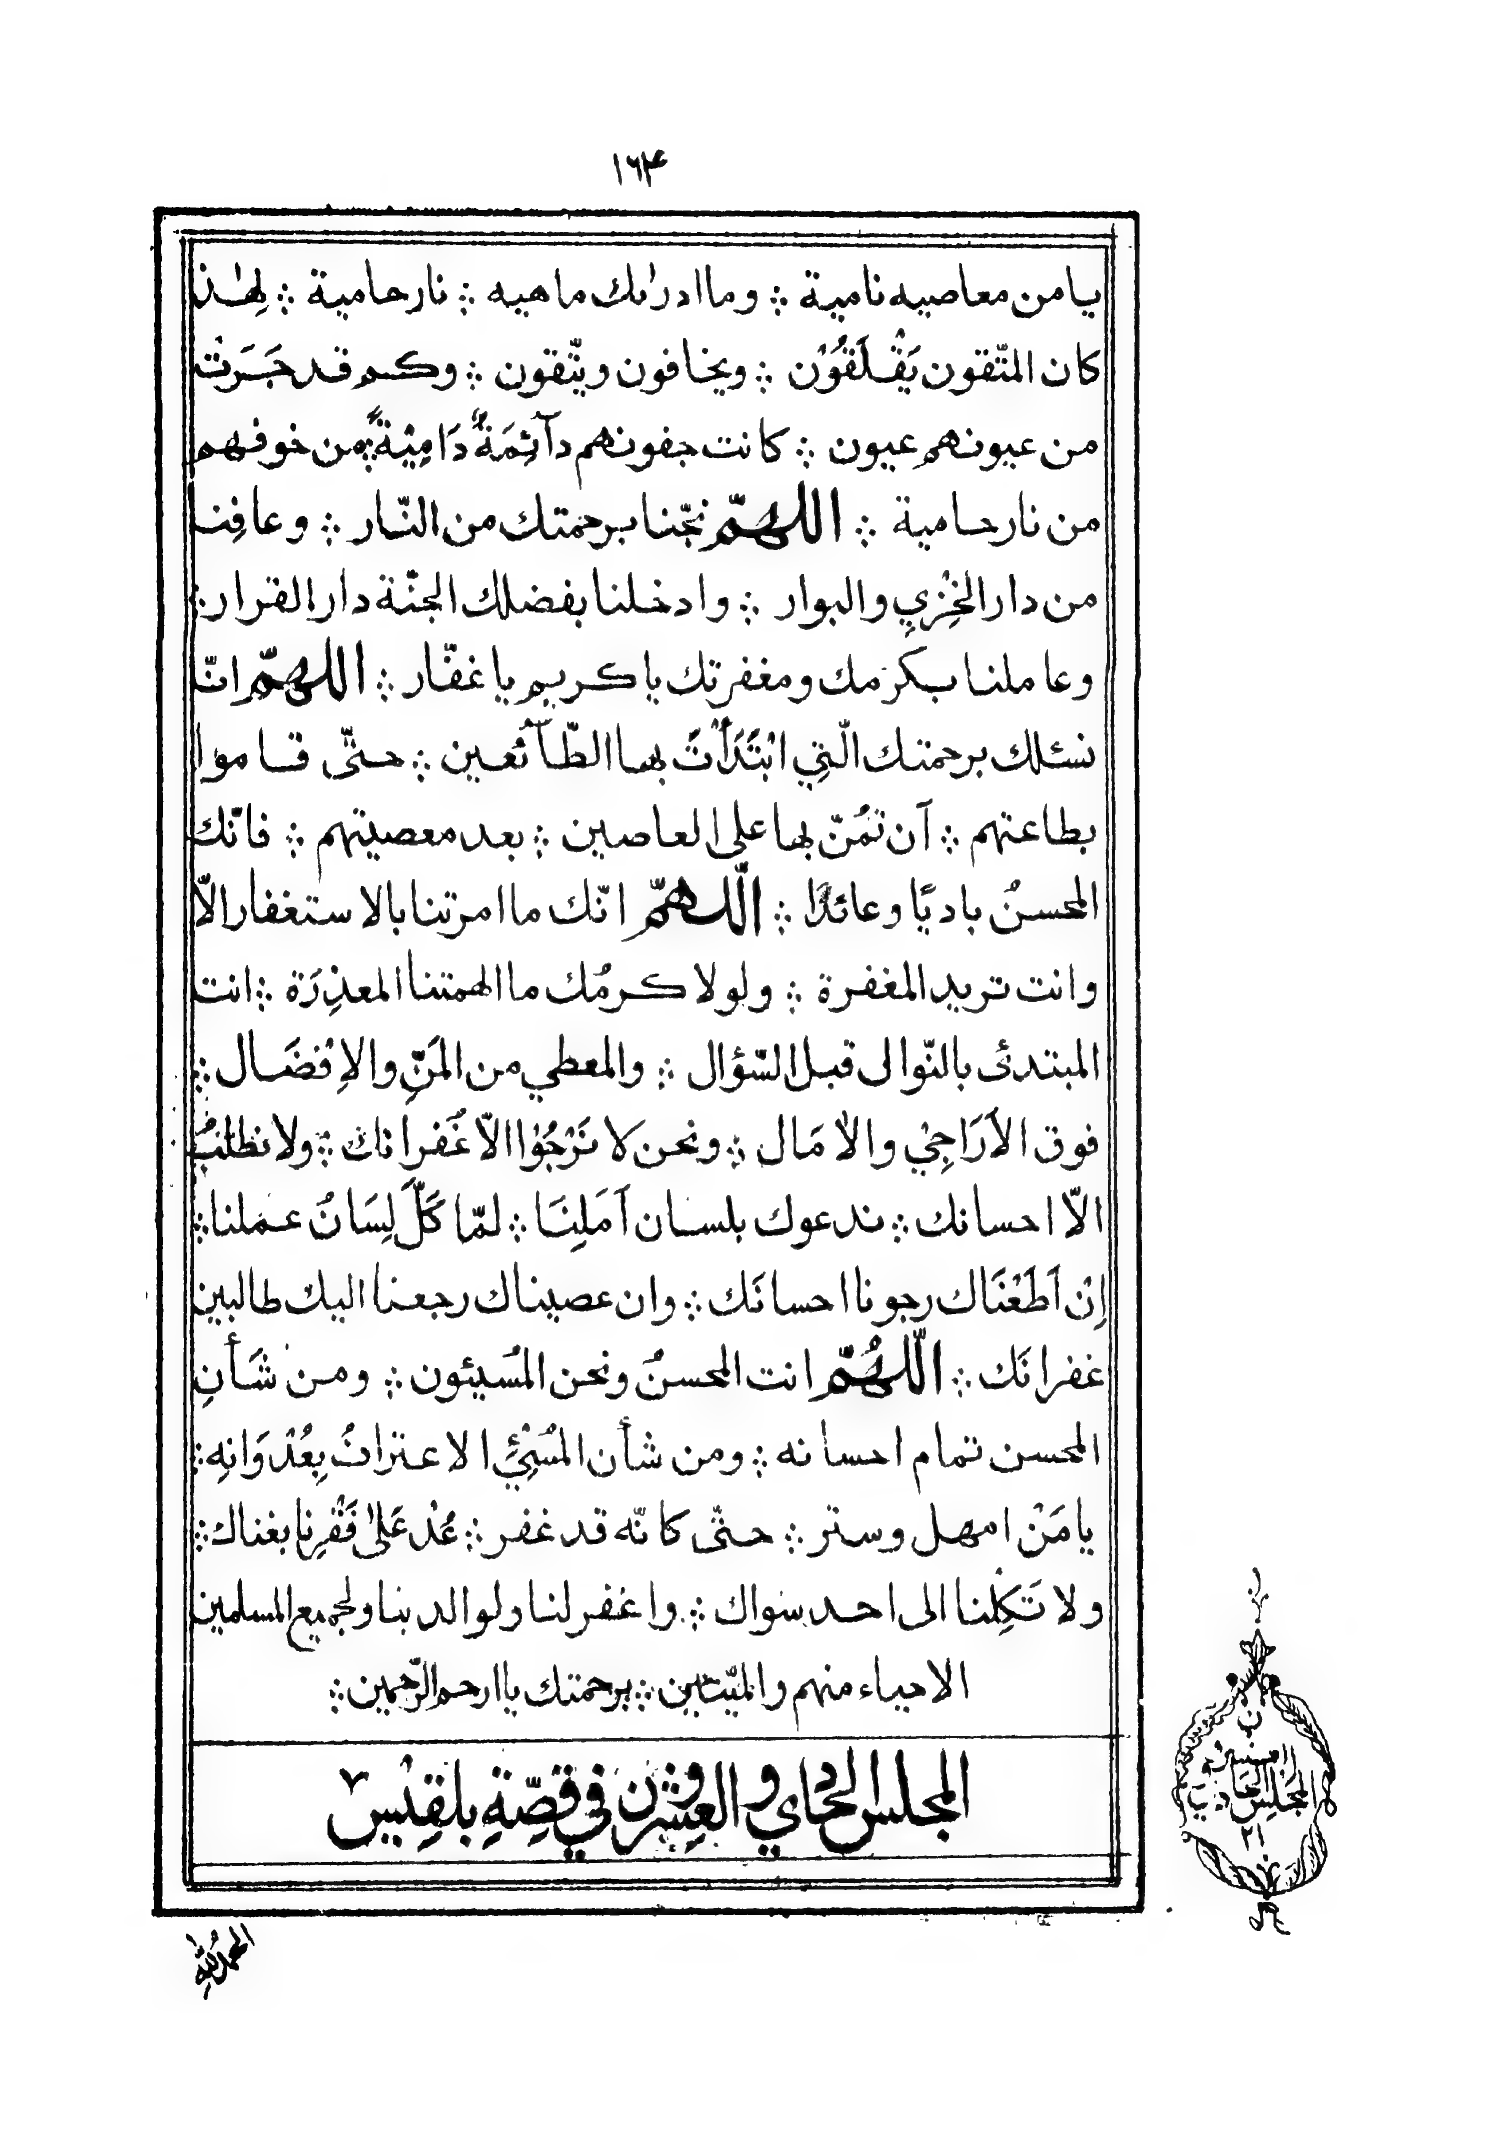 ١٦۴
يامن معاصيه نامية ؞ وماادرٰىك ماهيه ؞ نارحامية ؞ لِهٰذ
كان المتّقون يَقْلَقُوْن ؞ ويخافون ويتّقون ؞ وكم قد جَرَتْ
من عيونهم عيون ؞ كانت جفونهم دآئِمَةً دَامِيْةً من خوفهم
من نارحامية ؞ اللهمّ نجّنا برحمتك من النّار ؞ وعافِنا
من دارالخِزْيِ والبوار ؞ وادخلنا بفضلك الجنّة دارالقرار ؞
وعاملنا بكرمك ومغفرتك ياكريم ياغفّار ؞ اللهمّ انّا
نسئلك برحمتك الّتي ابْتَدَأْتَ بها الطّآئعين ؞ حتّى قاموا
بطاعتهم ؞ آن تمُنّ بها على العاصين ؞ بعد معصيتهم ؞ فانّك
المحسنُ باديًا وعائدًا ؞ اللّهمّ انّك ماامرتنا بالاستغفار الّا
وانت تريد المغفرة ؞ ولولا كرمُك ماالهمتنا المعذِرَة ؞ انت
المبتدئ بالنّوال قبل السّؤال ؞ والمعطي من المَنِّ والاِفْضَال ؞
فوق الاَرَاجِيْ والاٰمَال ؞ ونحن لا نَرْجُوْا الّا غُفرانك ؞ ولا نطلبُ
الّا احسانك ؞ ندعوك بلسان آمَلِنَا ؞ لمّا كَلَّ لِسَانُ عملنا ؞
اِنْ اَطَعْنَاك رجونا احسانَك ؞ وان عصيناك رجعنا اليك طالبين
غفرانَك ؞ اللّهُمّ انت المحسنُ ونحن المُسيئون ؞ ومن شَأنِ
المحسن تمام احسانه ؞ ومن شأن المُسْيِئِ الاعترافُ بِعُدْوَانِهِ ؞
يامَنْ امهل وستر ؞ حتّى كانّه قد غفر ؞ عُدْ عَلىٰ فَقْرِنا بغناك ؞
ولا تَكِلْنا الى احد سواك ؞ واغفرلنا ولوالدينا ولجميع المسلمين
الاحياء منهم والميّتين ؞ برحمتك ياارحم الرّحمين ؞
المجلس الحادي والعِشرُون في قِصّةِ بلقِيس
المجلس الحادي
٢١
الحمدُ لِلّٰهِ